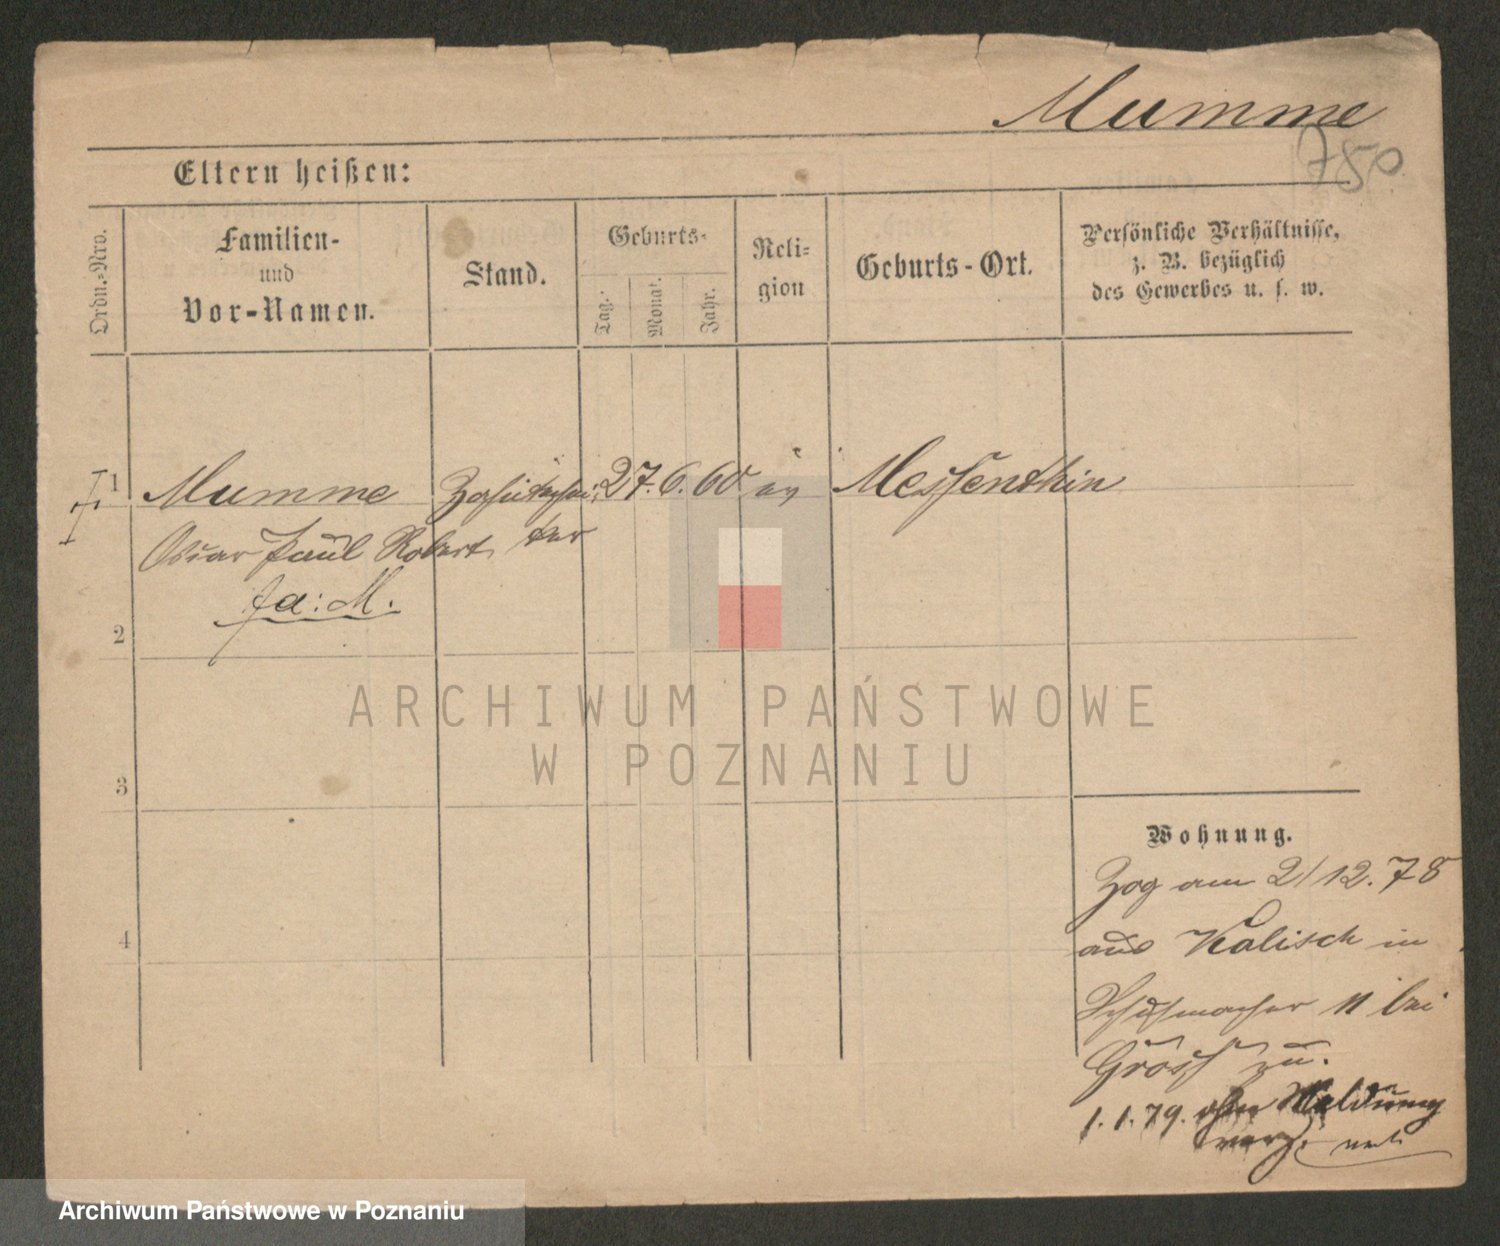 Mumme
780
Eltern heißen:
Ordn.-Nro.
Familien-
und
Vor-Namen.
Stand.
Geburts-
Tag.
Monat.
Jahr.
Reli-
gion
Geburts-Ort.
Persönliche Verhältnisse,
z. B. bezüglich
des Gewerbes u. s. w.
1 Mumme 27. 6. 60 ev Messenthin
Oscar Paul Robert ter
fa: M.
2
3
4
ARCHIWUM PAŃSTWOWE
W POZNANIU
Wohnung.
Zog am 2/12. 78
aus Kalisch in
Schuhmacher 11 bei
Gross zu.
1. 1. 79. ohne Meldung
verz.
Archiwum Państwowe w Poznaniu